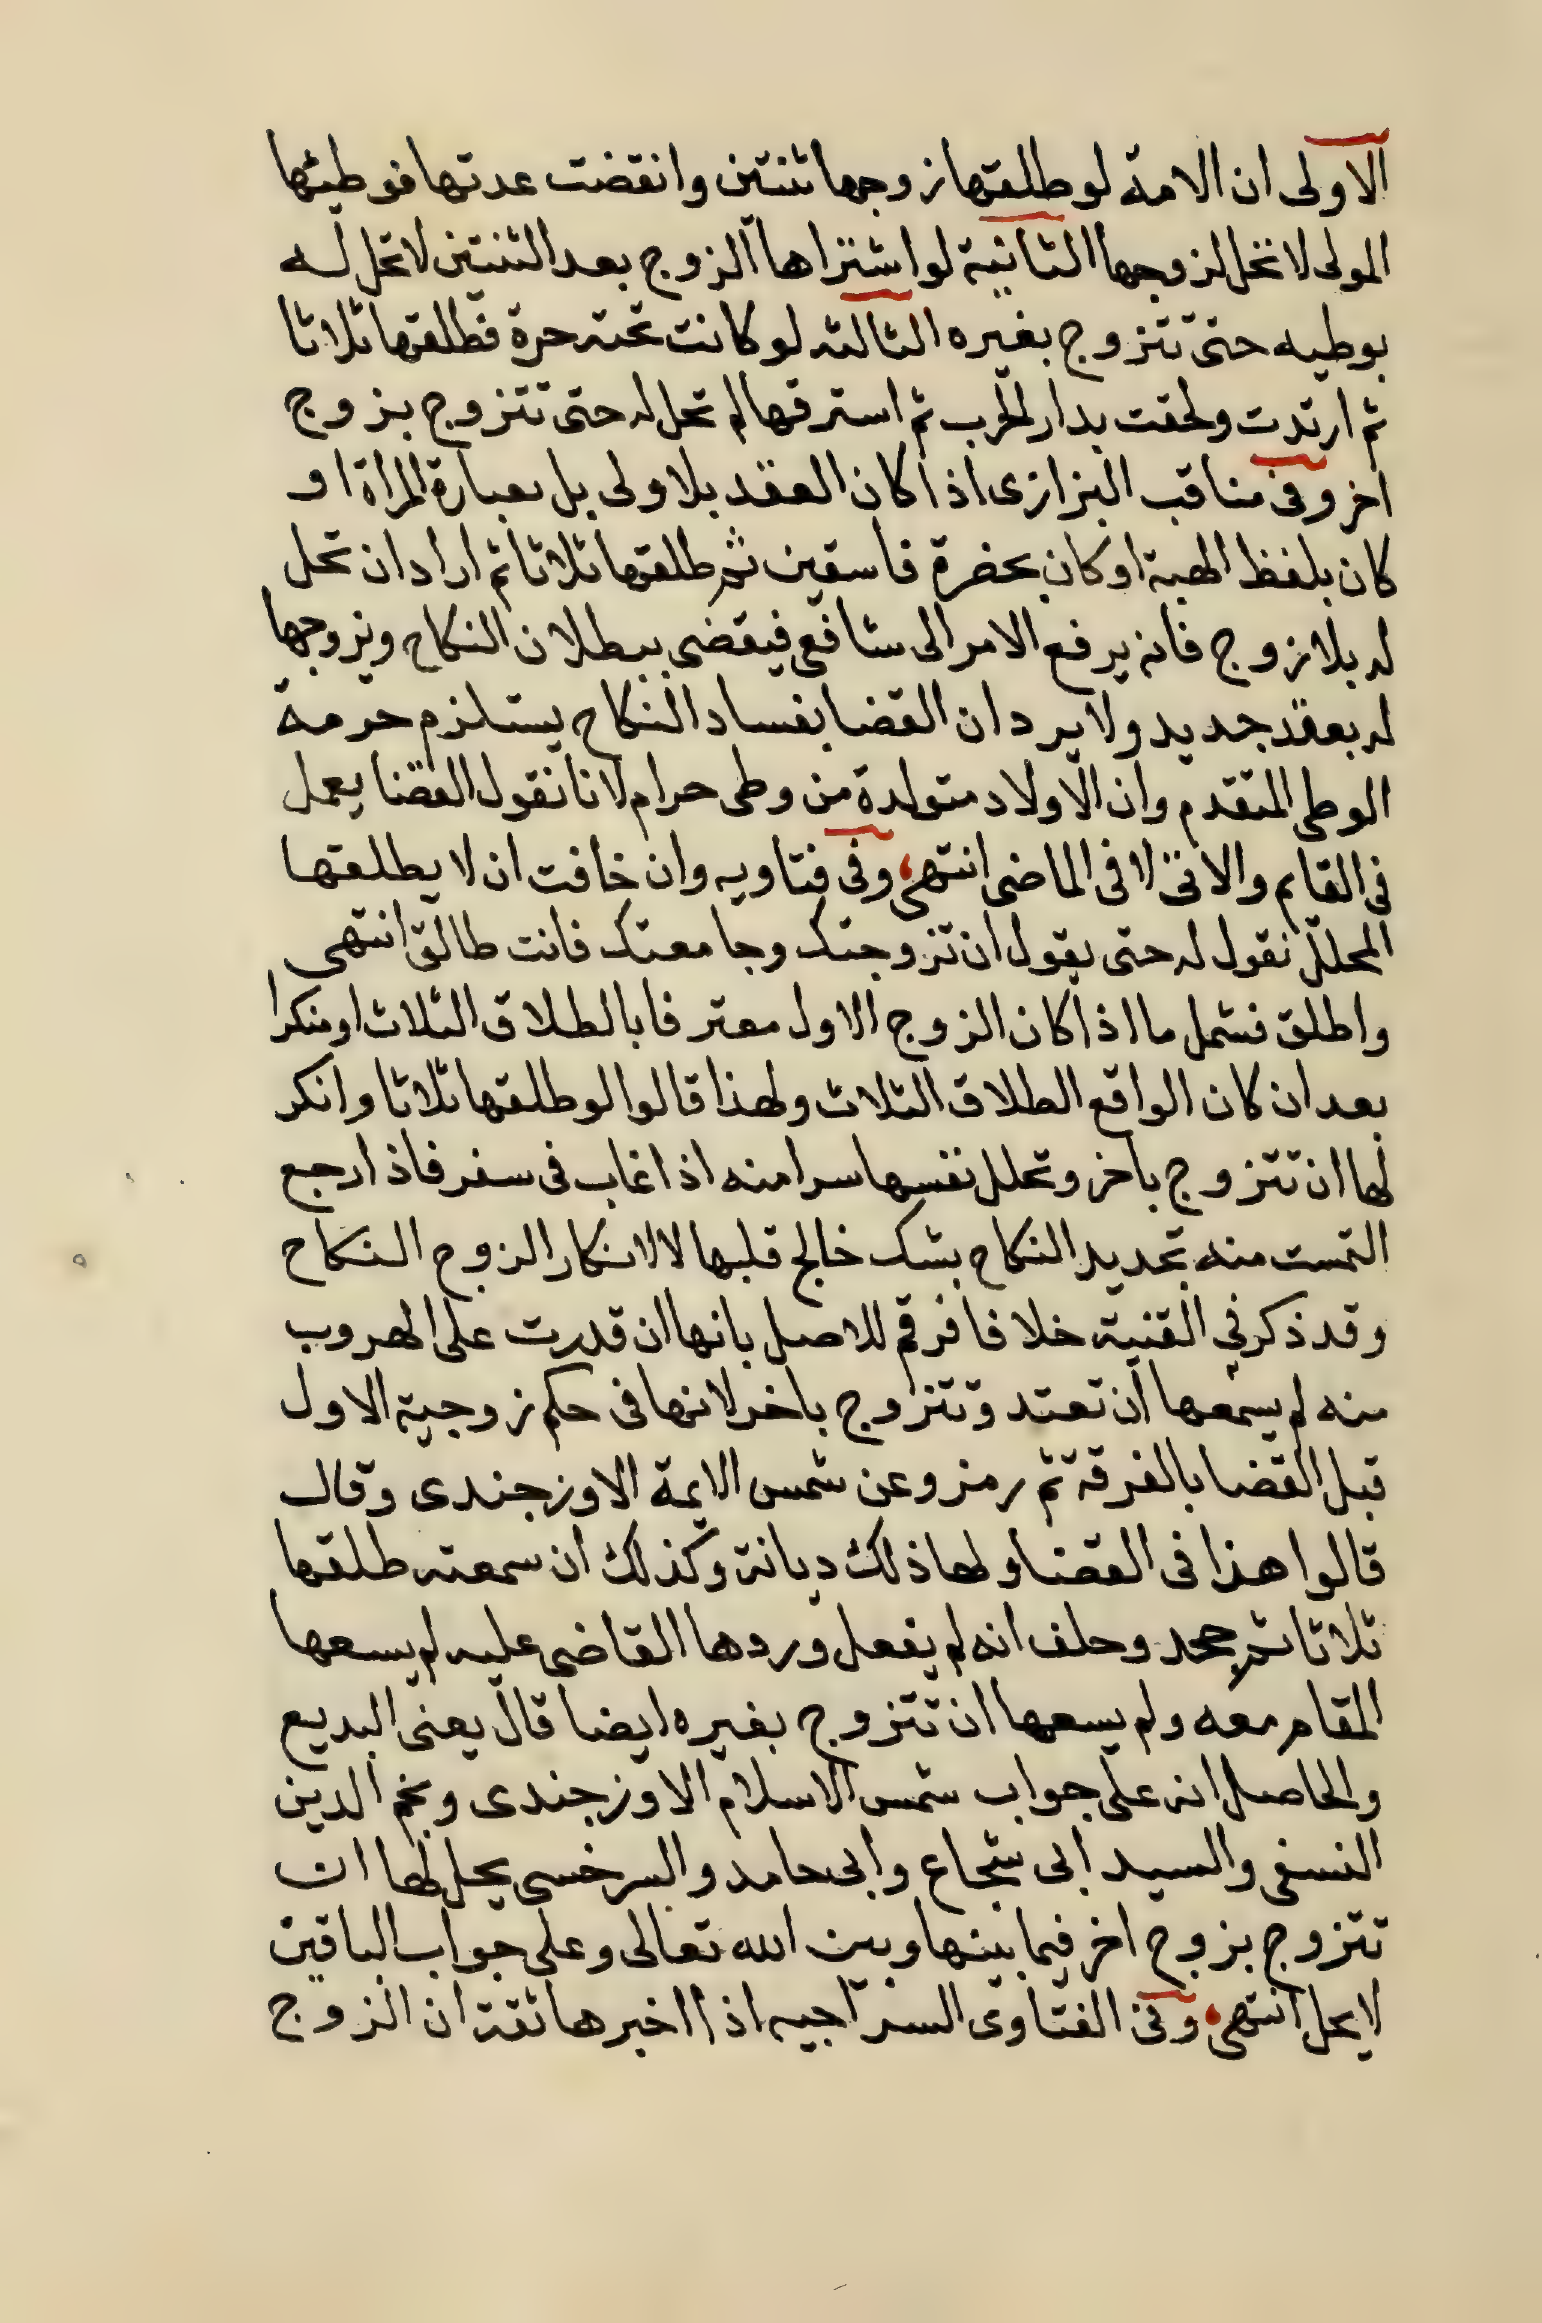 الاولى ان الامة لو طلقها زوجها ثنتين وانقضت عدتها فوطئها
المولى لا تحل لزوجها الثانية لو اشتراها الزوج بعد الثنتين لا تحل له
بوطيه حتى تتزوج بغيره الثالثه لو كانت تحته حرة فطلقها ثلاثا
ثم ارتدت ولحقت بدار الحرب ثم استرقها لم تحل له حتى تتزوج بزوج
اخر وفى مناقب البزازى اذا كان العقد بلا ولى بل بعبارة المراة او
كان بلفظ الهبة او كان بحضرة فاسقين ثم طلقها ثلاثا ثم اراد ان تحل
له بلا زوج فانه يرفع الامر الى شافعى فيقضى ببطلان النكاح ويزوجها
له بعقد جديد ولا يرد ان القضا بفساد النكاح يستلزم حرمة
الوطى المتقدم وان الاولاد متولدة من وطى حرام لانا نقول القضا يعمل
فى القايم والاتى لا فى الماضى انتهى وفى فتاويه وان خافت ان لا يطلقها
المحلل تقول له حتى يقول ان تزوجتك وجامعتك فانت طالق انتهى
واطلق فشمل ما اذا كان الزوج الاول معترفا بالطلاق الثلاث او منكرا
بعد ان كان الواقع الطلاق الثلاث ولهذا قالوا لو طلقها ثلاثا وانكر
لها ان تتزوج باخر وتحلل نفسها سرا منه اذا غاب فى سفر فاذا رجع
التمست منه تجديد النكاح بشك خالج قلبها لا لانكار الزوج النكاح
وقد ذكر في القنية خلافا فرقم للاصل بانها ان قدرت على الهروب
منه لم يسعها ان تعتد وتتزوج باخر لانها فى حكم زوجية الاول
قبل القضا بالفرقة ثم رمز وعن شمس الايمة الاوزجندى وقال
قالوا هذا فى القضا ولها ذلك ديانة وكذلك ان سمعته طلقها
ثلاثا ثم جحد وحلف انه لم يفعل وردها القاضى عليه لم يسعها
المقام معه ولم يسعها ان تتزوج بغيره ايضا قال يعنى البديع
والحاصل انه على جواب شمس الاسلام الاوزجندى ونجم الدين
النسفى والسيد ابى شجاع وابى حامد والسرخسى يحل لها ان
تتزوج بزوج اخر فيما بينها وبين الله تعالى وعلى جواب الباقين
لا يحل انتهى وفى الفتاوى السراجيه اذا اخبرها ثقة ان الزوج